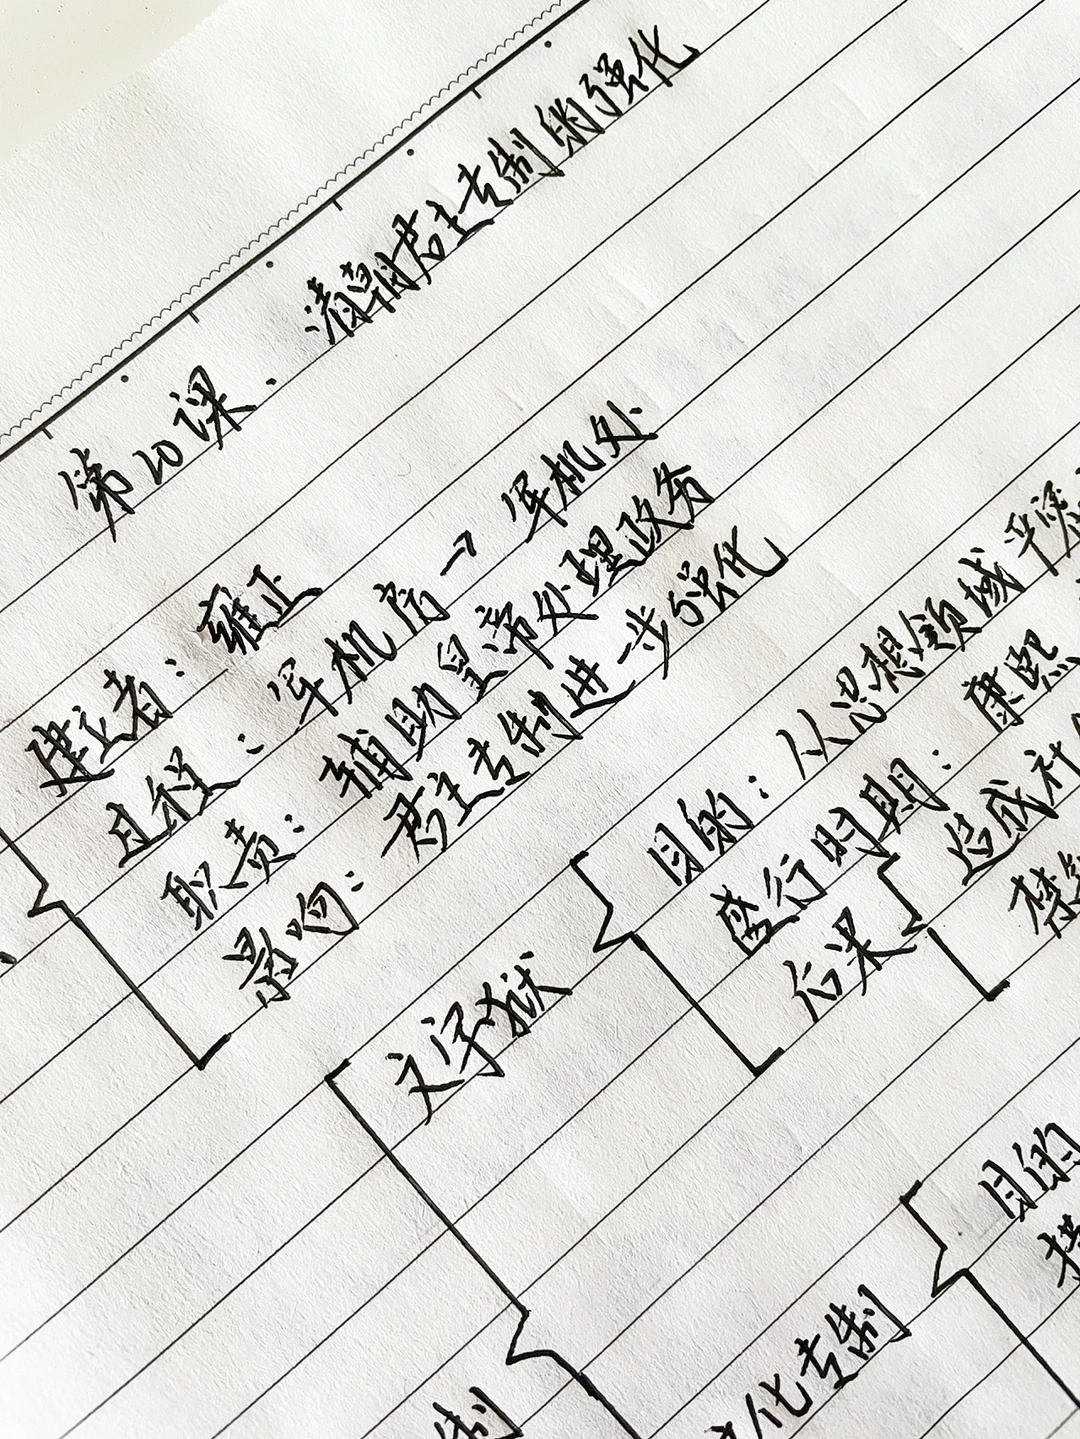 第10课、清朝君主专制的强化
建立者：雍正
过程：军机房→军机处
职责：辅助皇帝处理政务
影响：君主专制进一步强化
文字狱
目的：从思想领域严密
盛行时期：康熙
后果
造成社
禁
目的
化专制
制